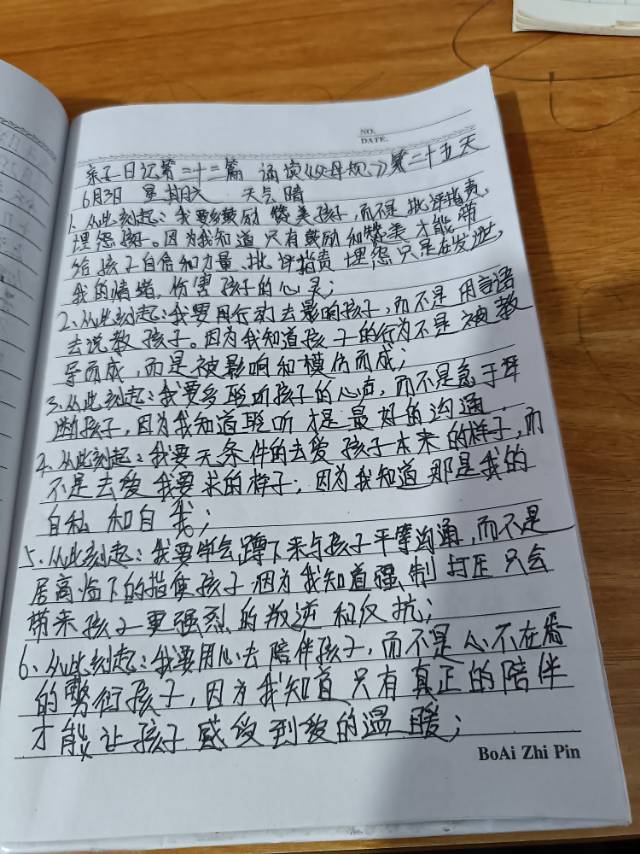 NO.
DATE.
亲子日记第二十二篇 诵读《父母规》第二十五天
6月3日 星期六 天气晴
1、从此刻起：我要多鼓励 赞美孩子，而不是批评指责，
埋怨孩子。因为我知道 只有鼓励和赞美 才能带
给孩子自信和力量，批评指责 埋怨只是在发泄，
我的情绪，伤害孩子的心灵；
2、从此刻起：我要用行动去影响孩子，而不是用言语
去说教孩子。因为我知道孩子的行为不是被教
导而成，而是被影响和模仿而成；
3、从此刻起：我要多聆听孩子的心声，而不是急于评
断孩子，因为我知道聆听才是最好的沟通．
4、从此刻起：我要无条件的去爱孩子本来的样子，而
不是去爱我要求的样子；因为我知道那是我的
自私和自我；
5、从此刻起：我要学会蹲下来与孩子平等沟通，而不是
居高临下的指使孩子．因为我知道强制打压只会
带来孩子更强烈的叛逆和反抗；
6、从此刻起：我要用心去陪伴孩子，而不是心不在焉
的敷衍孩子，因为我知道只有真正的陪伴
才能让孩子感受到爱的温暖；
BoAi Zhi Pin